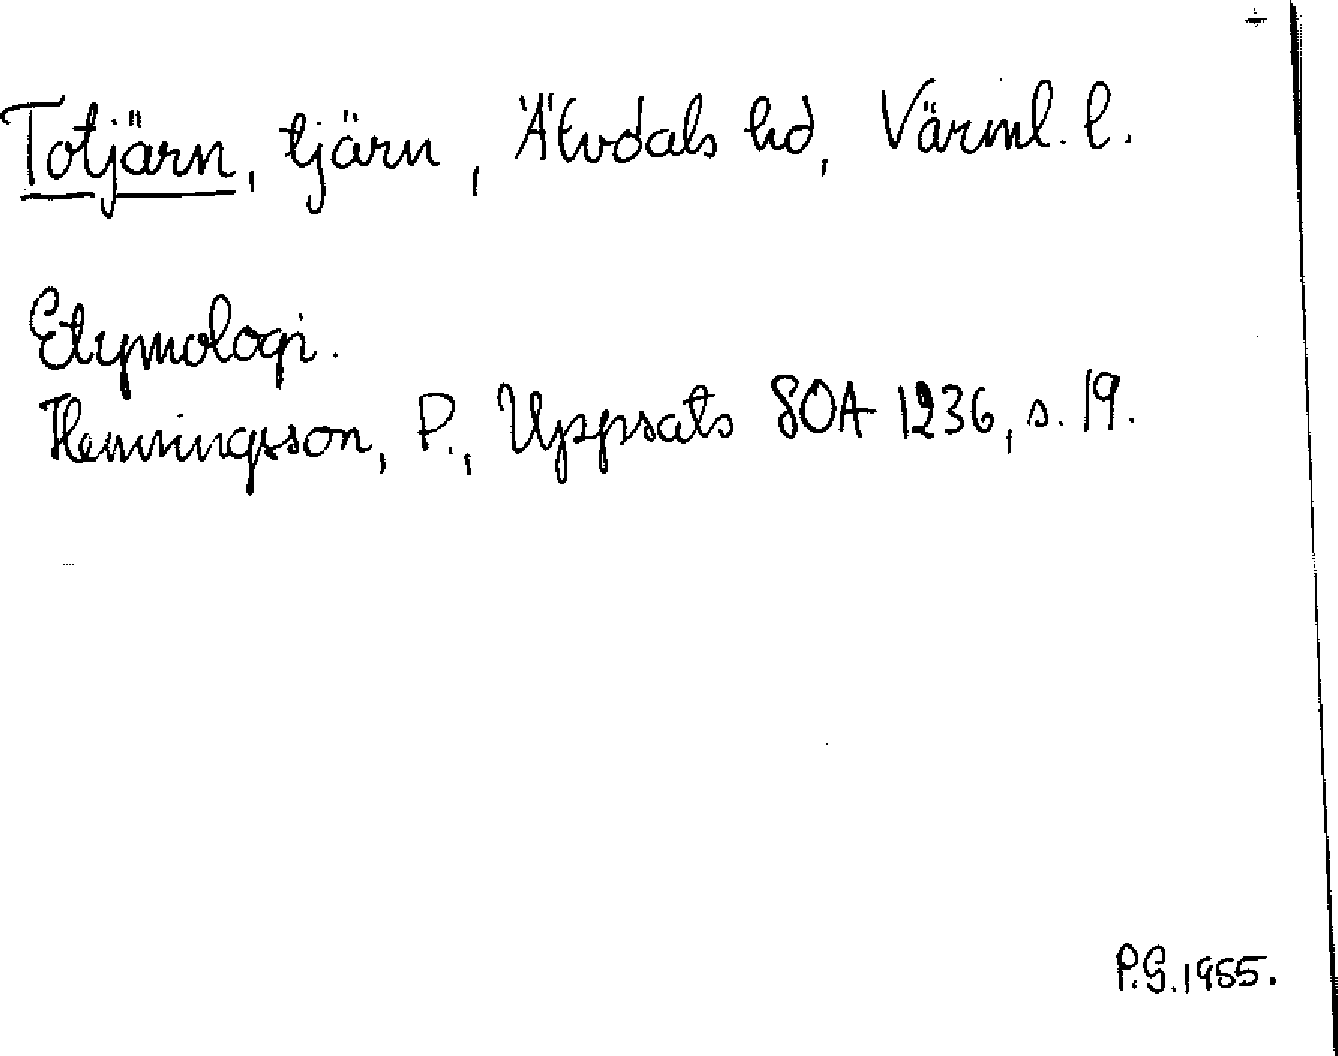 Totjärn, tjärn, Älvdals hd, Värml. l.
Etymologi.
Henningsson, P., Uppsats SOA 1236, s. 19.
P.G. 1955.